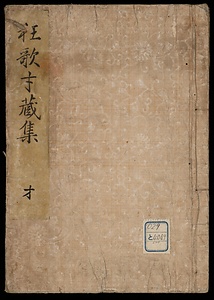 狂歌才蔵集 才